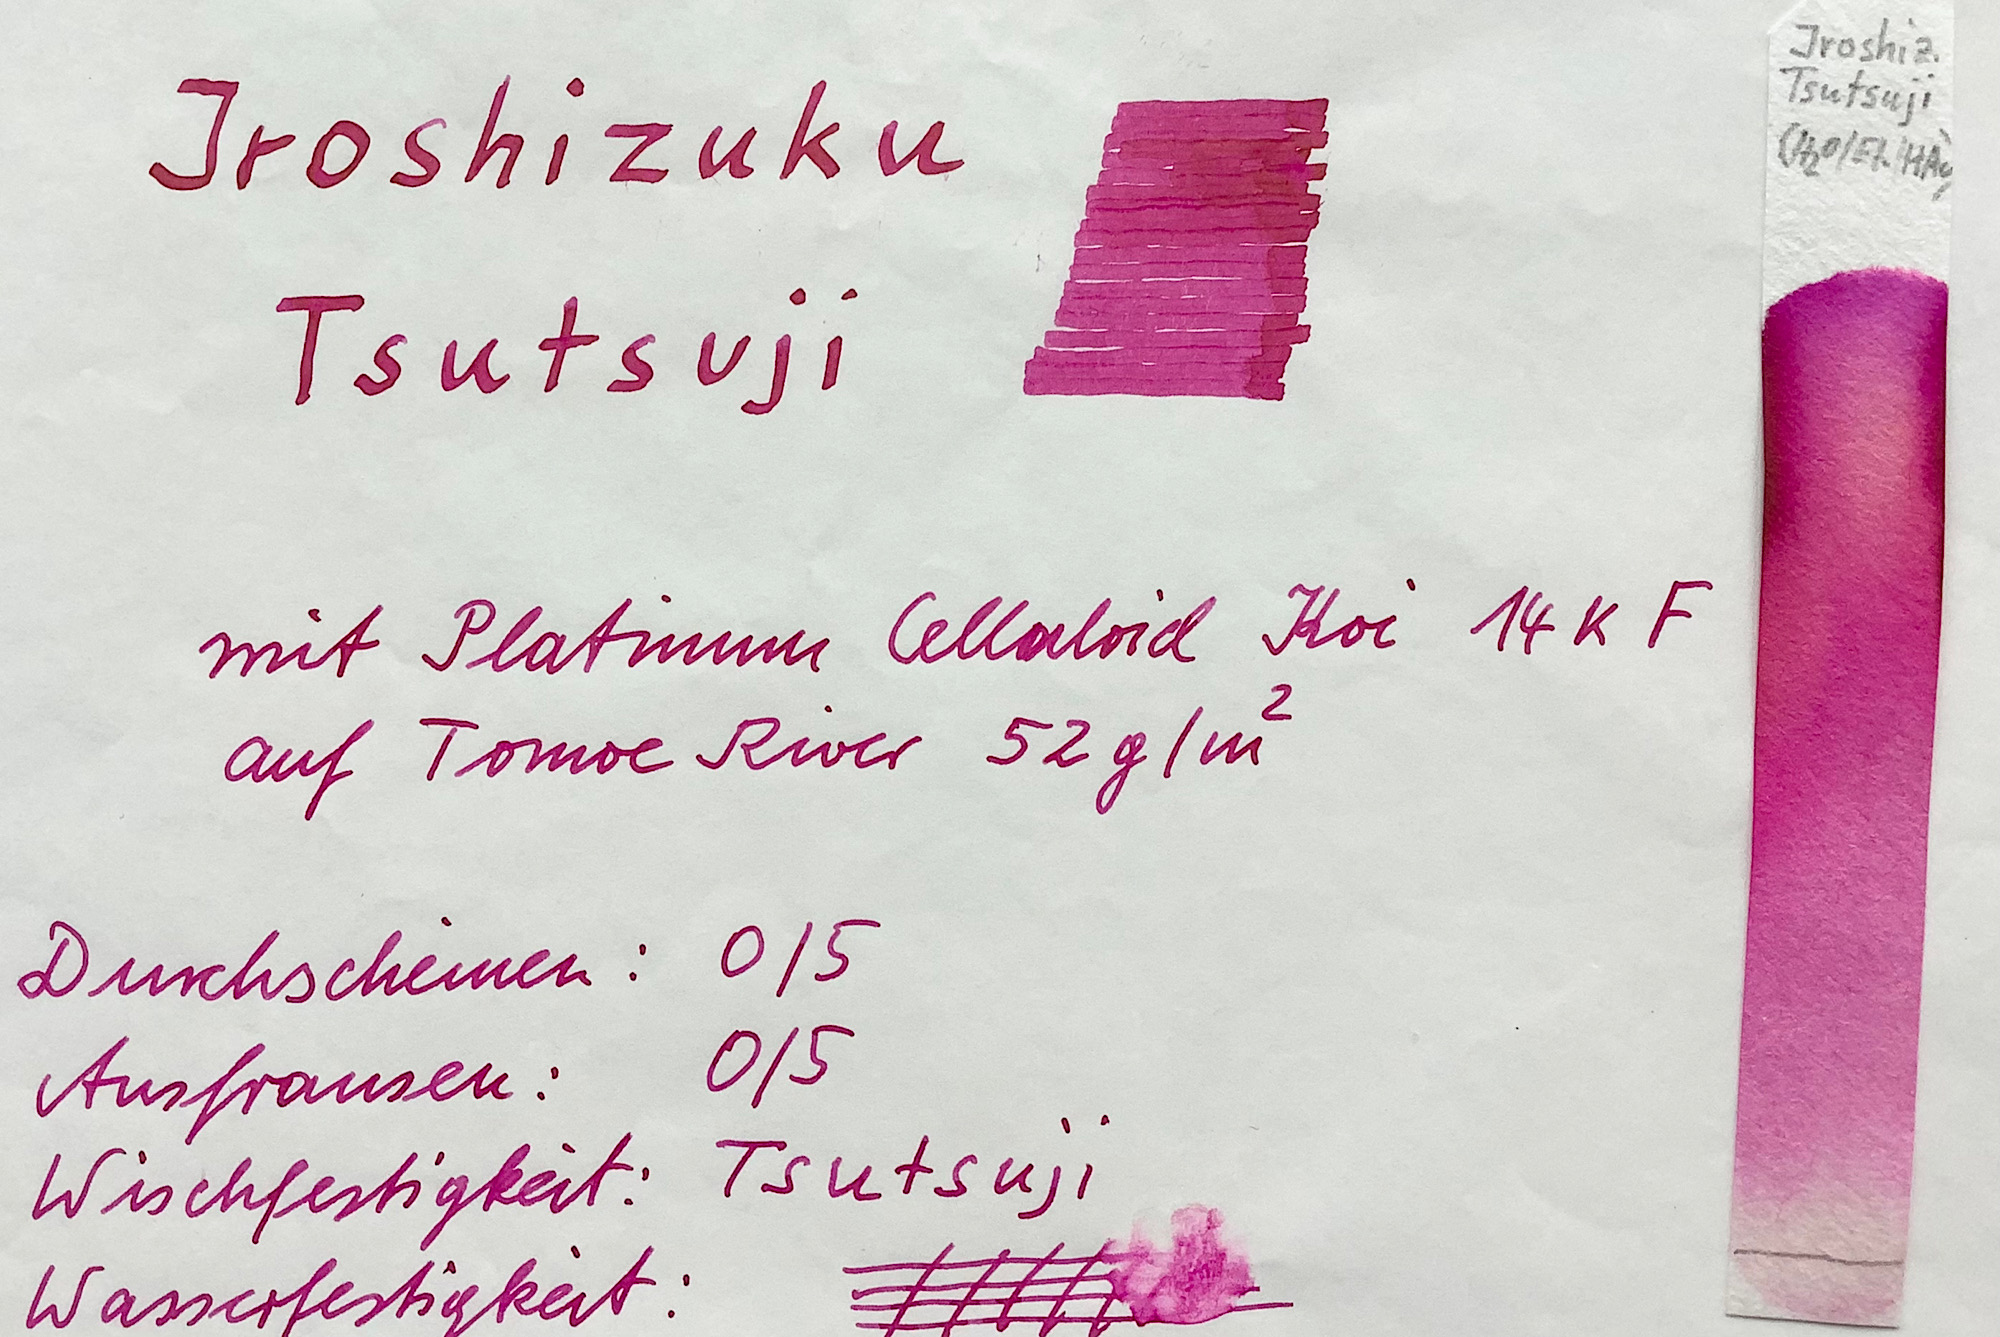 Iroshizuku
Tsutsuji
mit Platinum Celluloid Koi 14 K F
auf Tomoe River 52 g/m²
Durchscheinen: 0/5
Ausfransen: 0/5
Wischfestigkeit: Tsutsuji
Wasserfestigkeit:
Iroshiz.
Tsutsuji
(H₂O/Et./HAc)